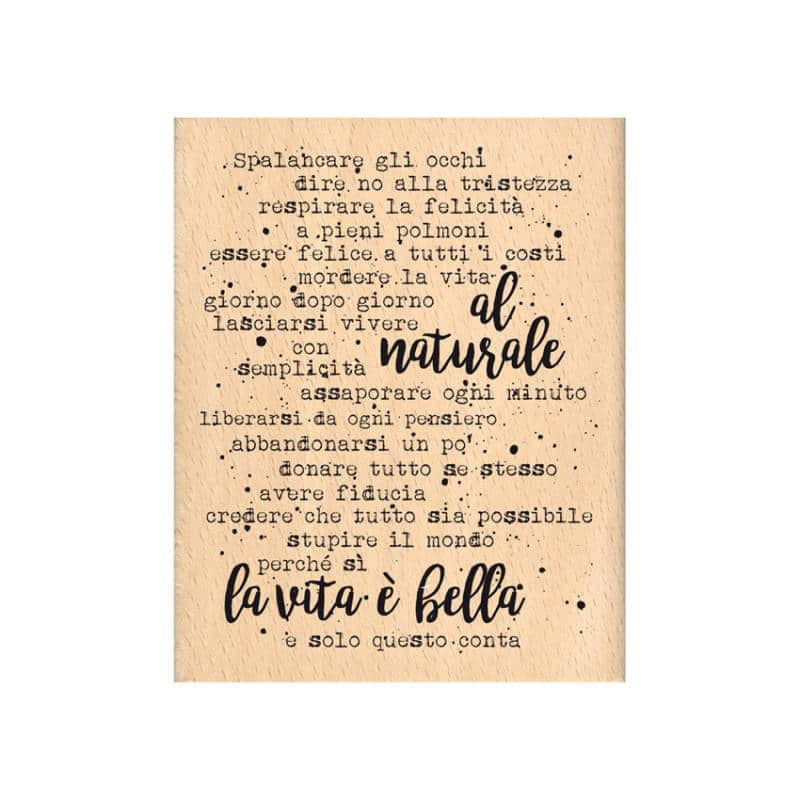 Spalancare gli occhi
dire no alla tristezza
respirare la felicità
a pieni polmoni
essere felice a tutti i costi
mordere la vita
giorno dopo giorno
lasciarsi vivere
al
naturale
con
semplicità
assaporare ogni minuto
liberarsi da ogni pensiero
abbandonarsi un po'
donare tutto se stesso
avere fiducia
credere che tutto sia possibile
stupire il mondo
perché sì
la vita è bella
e solo questo conta